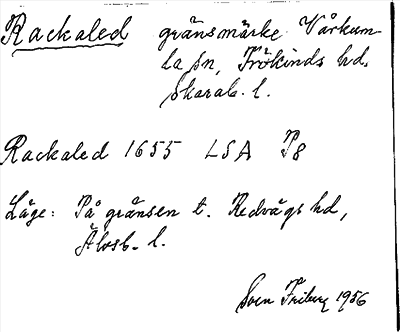 Rackaled gränsmärke Vårkum-
la sn, Frökinds hd,
Skarab. l.
Rackaled 1655 LSA P8
Läge: På gränsen t. Redvägs hd,
Älvsb. l.
Sven Friberg 1956